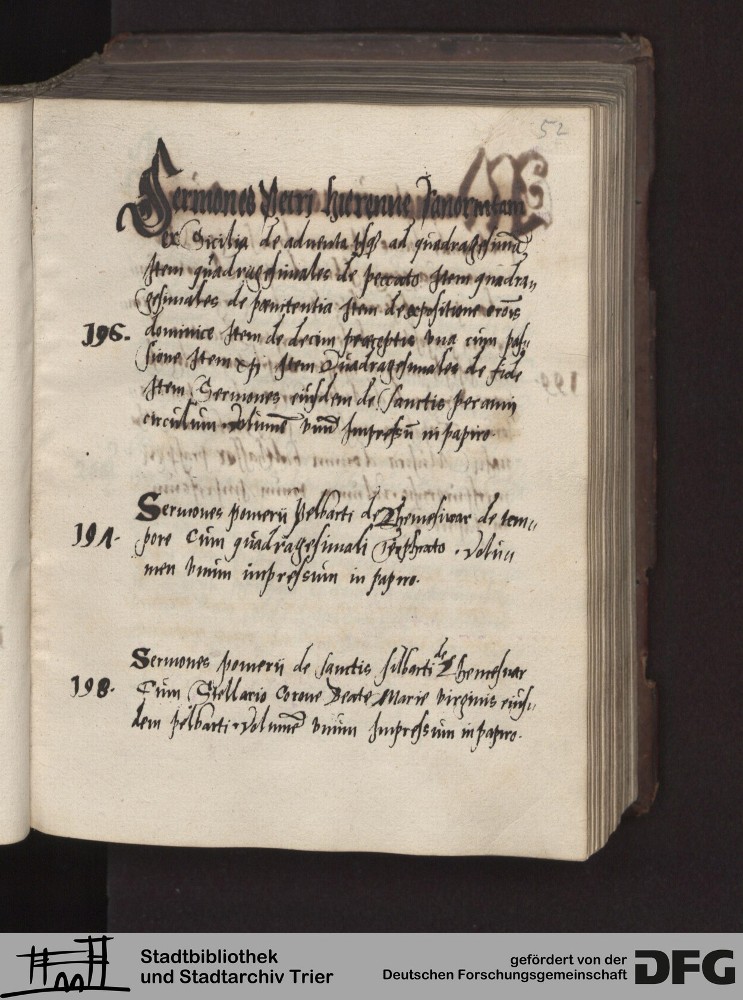 52
Sermones Petri hieremie Panormitani
ex Sicilia de aduentu usq ad quadragesima
Item quadragesimales de peccato Item quadra„
gesimales de penitentia Item de expositione orois
196. dominice Item de decim preceptis vna cum pas„
sione Item Item Quadragesimales de fide
Item Sermones eiusdem de Sanctis per anni
circulum. Volume vnu Impressu in papiro.
Sermones pomerii Pelbarti de Themeswar de tem„
197. pore Cum quadragesimali . Volu„
men vnum impressum in papiro.
Sermones pomerii de sanctis pilbarti de Themeswar
198. Cum Stellario Corone Beate Marie virginis eius„
dem pelbarti. Volume vnum Impressum in papiro.
Stadtbibliothek
und Stadtarchiv Trier
gefördert von der
Deutschen Forschungsgemeinschaft
DFG